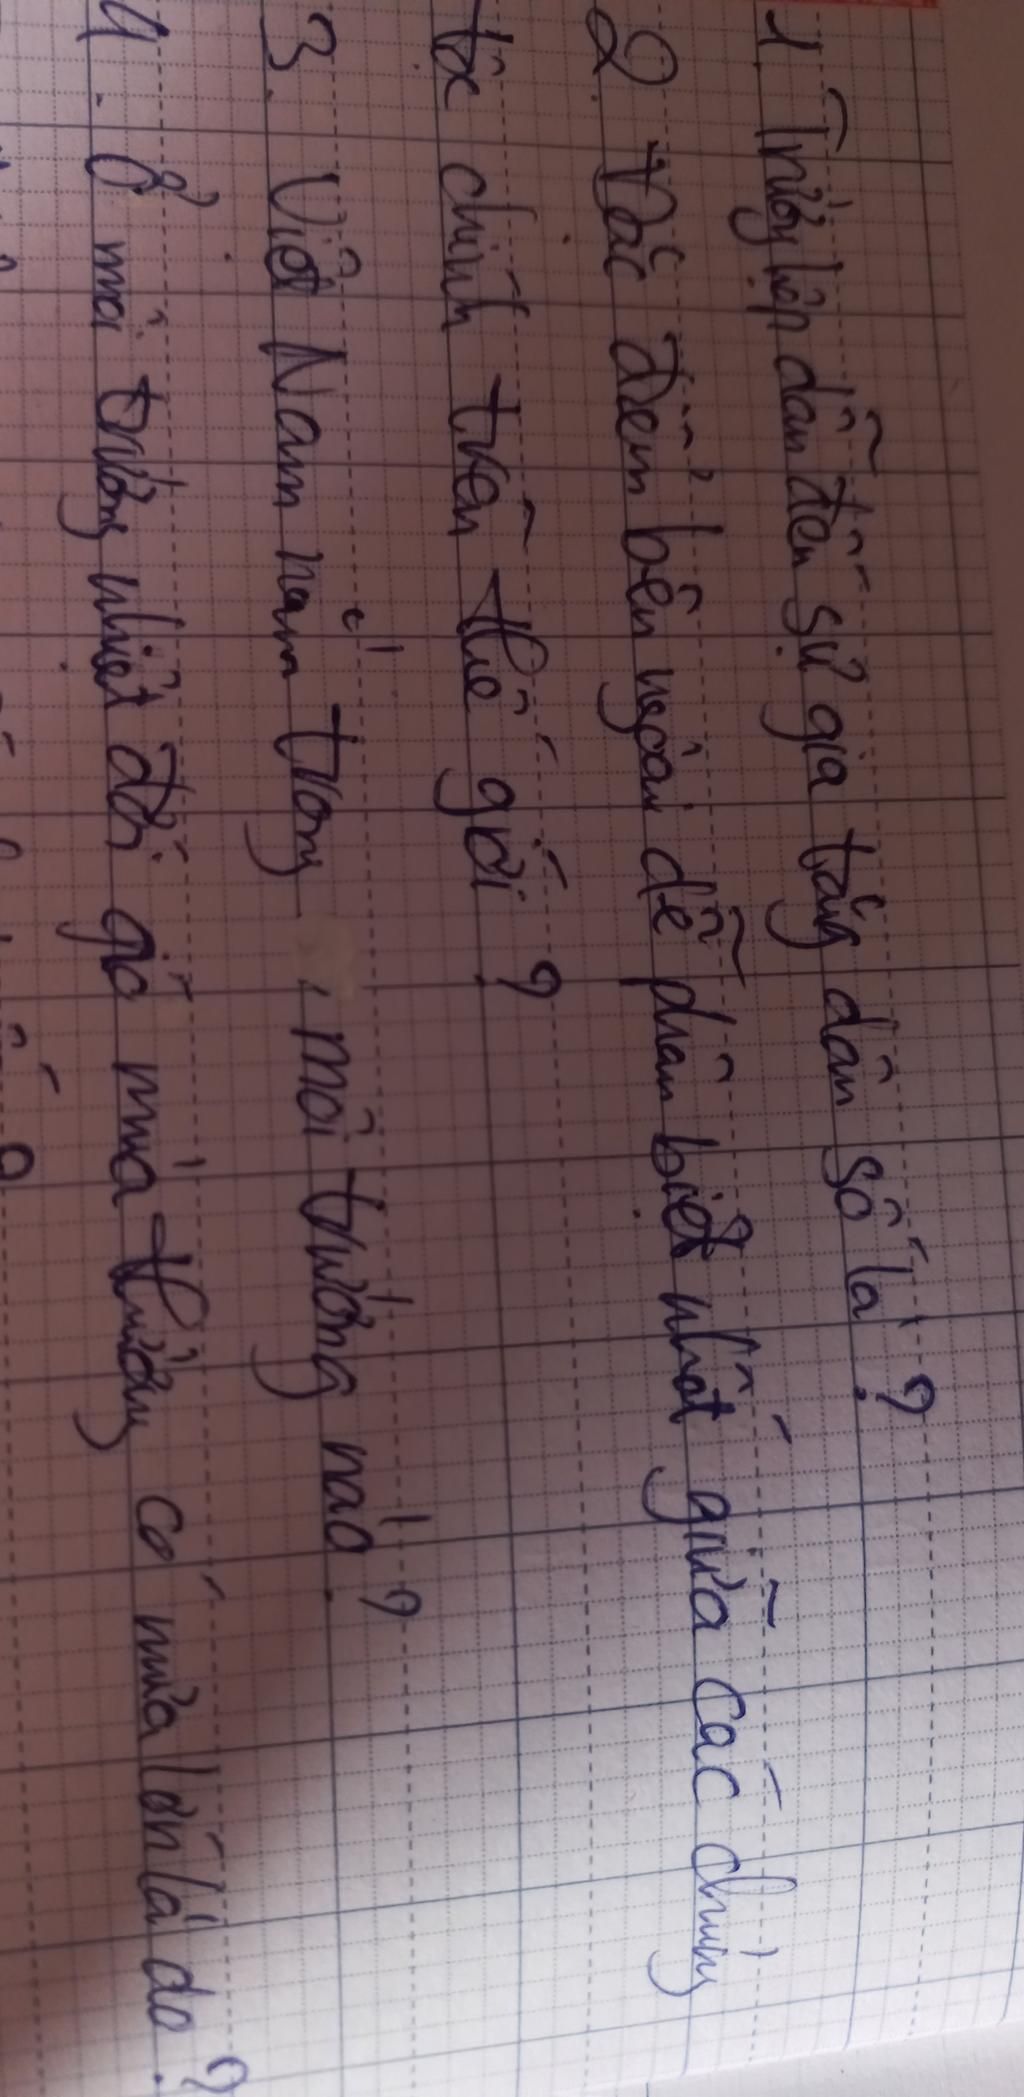 1. Trường hợp dẫn đến sự gia tăng dân số là?
2. Đặc điểm bên ngoài dễ phân biệt nhất giữa các chủng
tộc chính trên thế giới?
3. Việt Nam nằm trong môi trường nào?
4. Ở môi trường nhiệt đới gió mùa thường có mưa lớn là do?